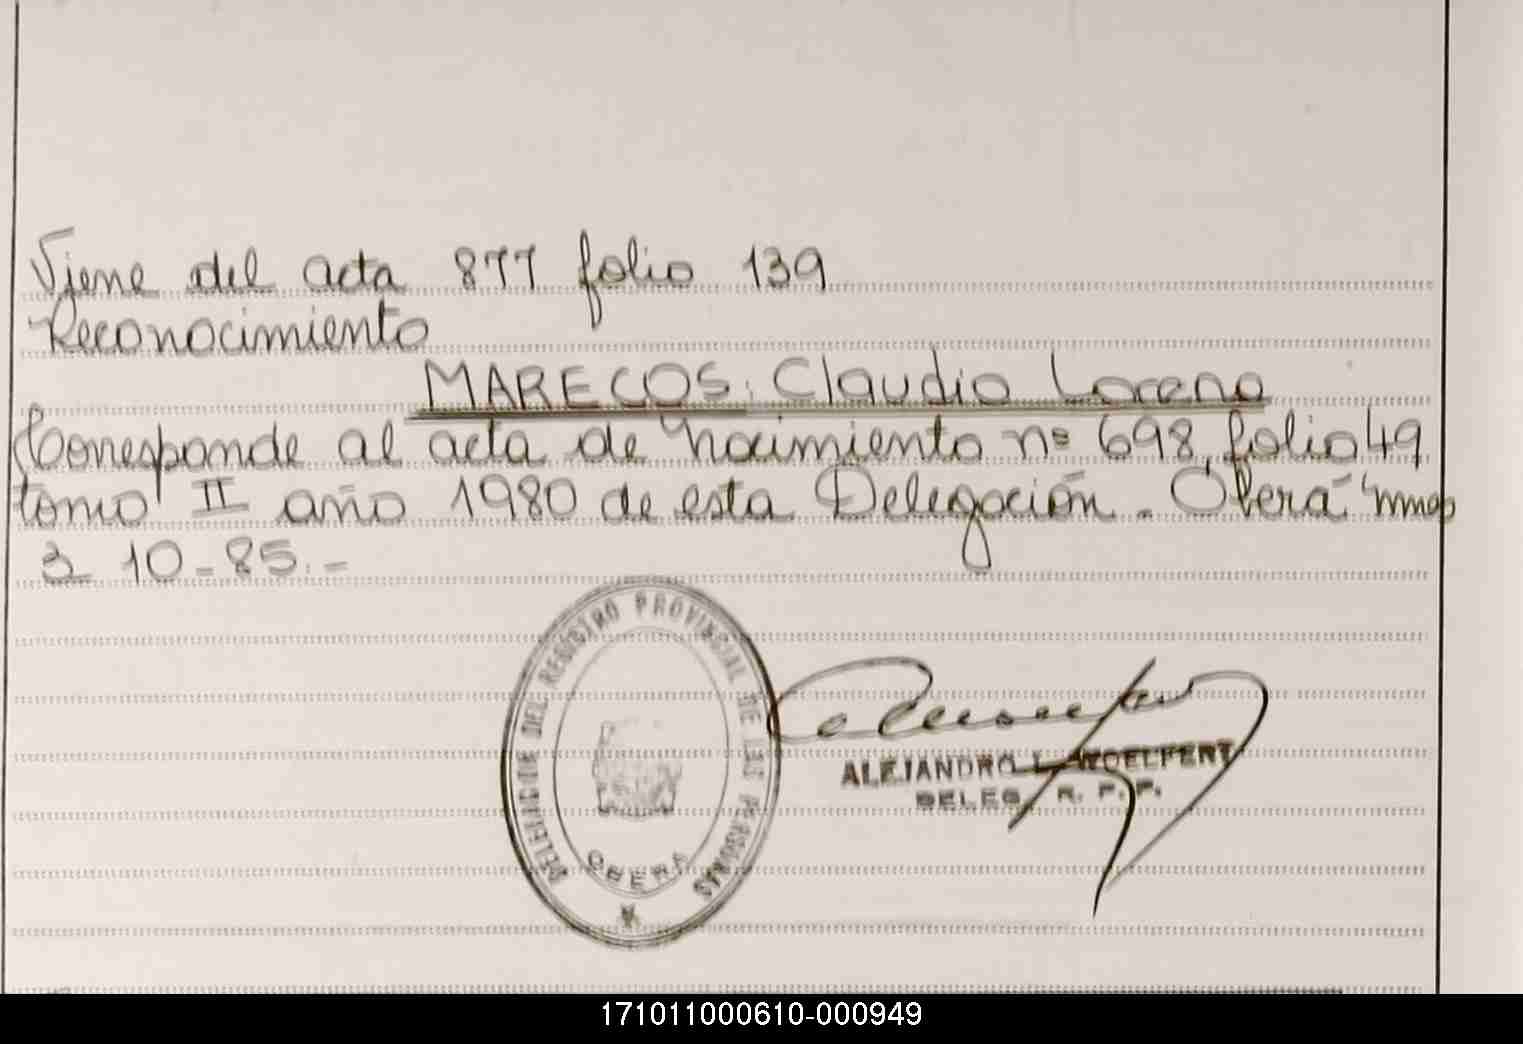 Viene del acta 877 folio 139
Reconocimiento
MARECOS: Claudio Loreno
Corresponde al acta de nacimiento nº 698, folio 49
tomo II año 1980 de esta Delegación. Oberá Mnes
3-10-85.-
DELEGACION DEL REGISTRO PROVINCIAL DE LAS PERSONAS
OBERA
ALEJANDRO L.
DELEG. R. P. P.
171011000610-000949